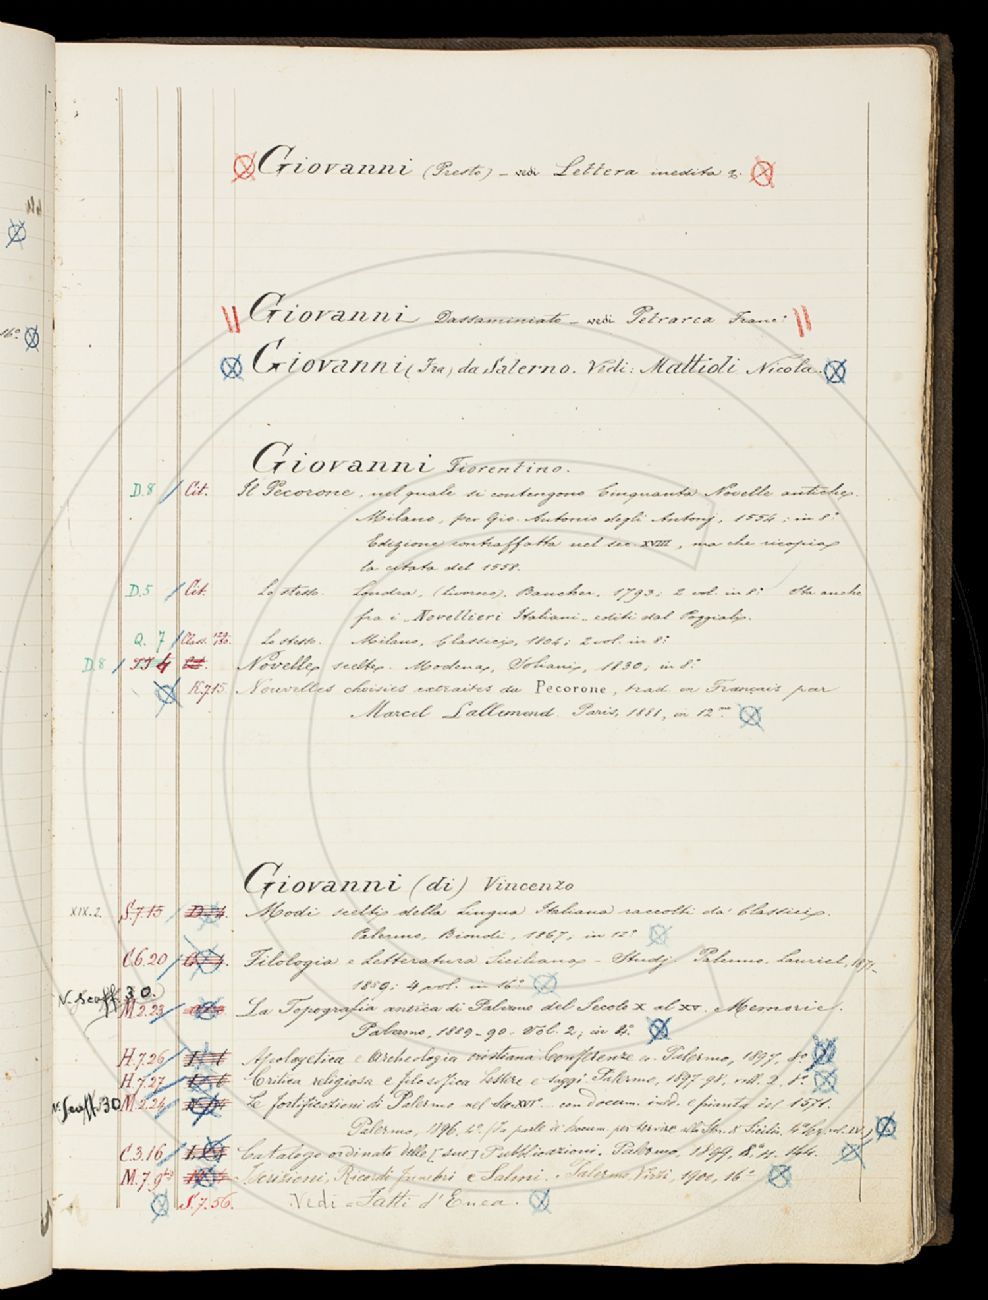 Giovanni (Presto) - vedi Lettera inedita &.
Giovanni Dassaminiato - vedi Petrarca Franc.
16°
Giovanni (Fra) da Salerno. Vedi: Mattioli Nicola.
Giovanni Fiorentino.
D.8 / Cit. Il Pecorone, nel quale si contengono Cinquanta Novelle antiche.
Milano, per Gio. Antonio degli Antonj, 1554; in 8°
Edizione contraffatta nel sec. XVIII, ma che ricopia
la citata del 1558.
D.5 / Cit. Lo stesso. Londra, (Livorno), Bancker, 1793; 2 vol. in 8° Sta anche
fra i Novellieri Italiani editi dal Poggiali.
Q. 7 / Class. Lo stesso. Milano, Classici, 1804; 2 vol. in 8°
D.8 / Novelle scelte. Modena, Soliani, 1830; in 8°
K.7.15 Nouvelles choisies extraites du Pecorone, trad. en Français par
Marcel Lallemend. Paris, 1881, in 12.mo
Giovanni (di) Vincenzo
XIX.2. S.7.15 / Modi scelti della Lingua Italiana raccolti da' Classici.
Palermo, Biondi, 1867, in 12°
C.6.20 / Filologia e Letteratura Siciliana - Studj. Palermo, Lauriel, 1871-
1889; 4 vol. in 16°
N. Scaff. 30.
M.2.23 La Topografia antica di Palermo dal Secolo X al XV. Memorie.
Palermo, 1889-90. Vol. 2; in 4°
H.7.26 Apologetica e Archeologia cristiana Conferenze &. Palermo, 1897, 8°
H.7.27 Critica religiosa e filosofica lettere e saggi. Palermo, 1897-98, voll. 2. 8°
N. Scaff. 30 M.2.24 Le fortificazioni di Palermo nel Sec. XVI. con docum. ined. e pianta del 1571.
Palermo, 1896, 4° (Fa parte di Docum. per servire alla Stor. di Sicilia, 4ª vol. IV.)
C.3.16 / Catalogo ordinato delle [sue] Pubblicazioni. Palermo, 1899, 8° p. 144.
M.7.9 Iscrizioni, Ricordi funebri e Salmi. Palermo, Virzì, 1901, 16°
S.7.56. Vedi - Fatti d'Enea.